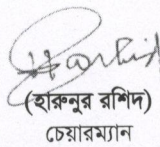 (হারুনুর রশিদ)
চেয়ারম্যান